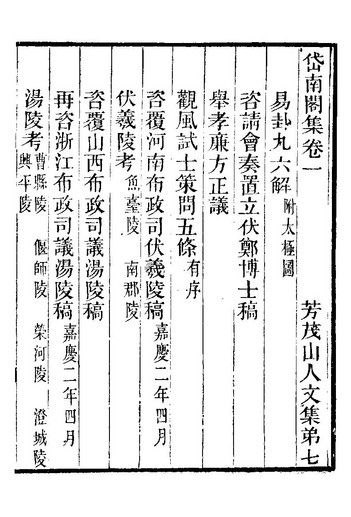 岱南閣集卷一 芳茂山人文集弟七
易卦九六解 附太極圖
咨請會奏置立伏鄭博士稿
舉孝廉方正議
觀風試士策問五條 有序
咨覆河南布政司伏羲陵稿 嘉慶二年四月
伏羲陵考 魚臺陵 南郡陵
咨覆山西布政司議湯陵稿
再咨浙江布政司議湯陵稿 嘉慶二年四月
湯陵考 曹縣陵 偃師陵 榮河陵 澄城陵 興平陵